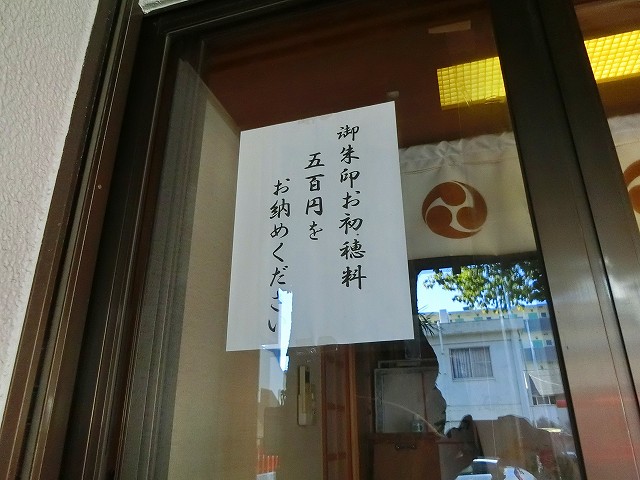 御朱印お初穂料
五百円を
お納めください